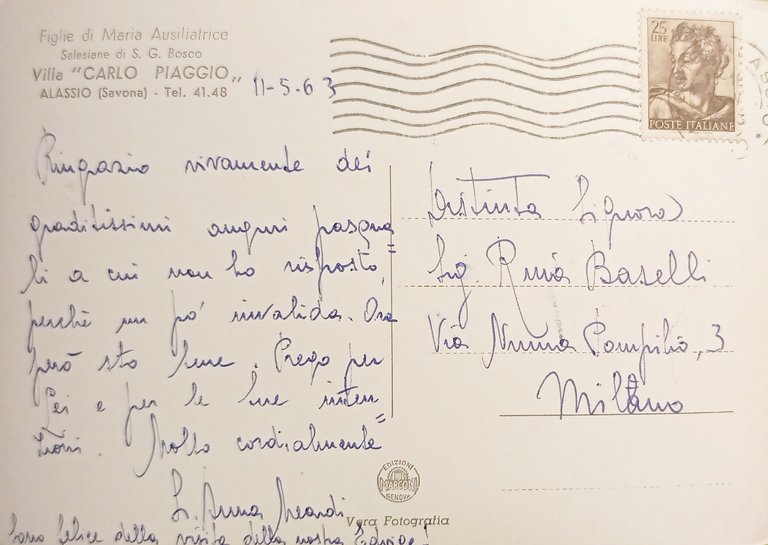 Figlie di Maria Ausiliatrice
Salesiane di S. G. Bosco
Villa "CARLO PIAGGIO"
ALASSIO (Savona) - Tel. 41.48
11-5-63
Ringrazio vivamente dei
graditissimi auguri pasqua=
li a cui non ho risposto,
perchè un po' invalida. Ora
però sto bene. Prego per
Lei e per le Sue inten=
zioni. Molto cordialmente
Sr. Anna Meardi
Sono felice della visita della nostra Edvige!
25
LIRE
POSTE ITALIANE
Distinta Signora
Sig. Rina Baselli
Via Numa Pompilio, 3
Milano
EDIZIONI
MARCONI
GENOVA
Vera Fotografia